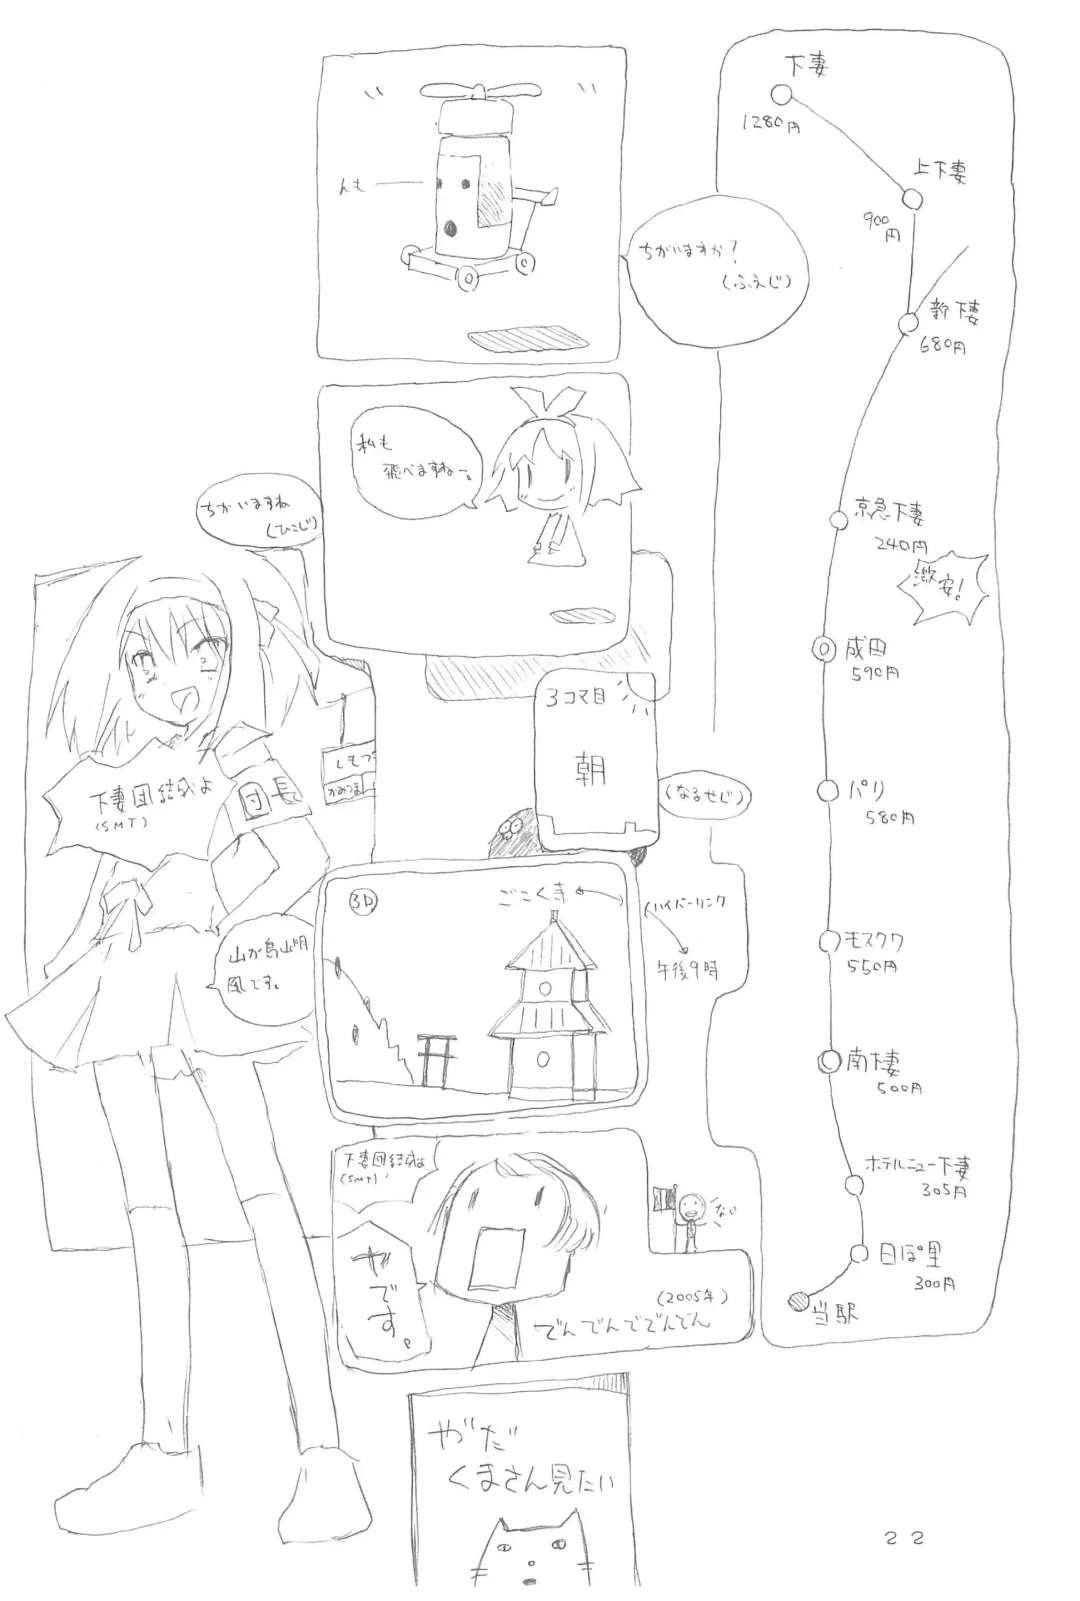 んも
ちがいますか?
(ふえじ)
私も
飛べますねー。
ちがいますね
(ひこじ)
3コマ目
朝
(なるせじ)
下妻団結成よ
(SMT)
団長
しもつ
かみつま
山が鳥山明
風です。
3D
ごこく寺
ハイパーリンク
午後9時
下妻団結成よ
(SMT)
やです。
ない
(2005年)
でんでんででんでん
やだ
くまさん見たい
下妻
1280円
上下妻
900円
新下妻
680円
京急下妻
240円
激安!
成田
590円
パリ
580円
モスクワ
550円
南棲
500円
ホテルニュー下妻
305円
日ぽ里
300円
当駅
22